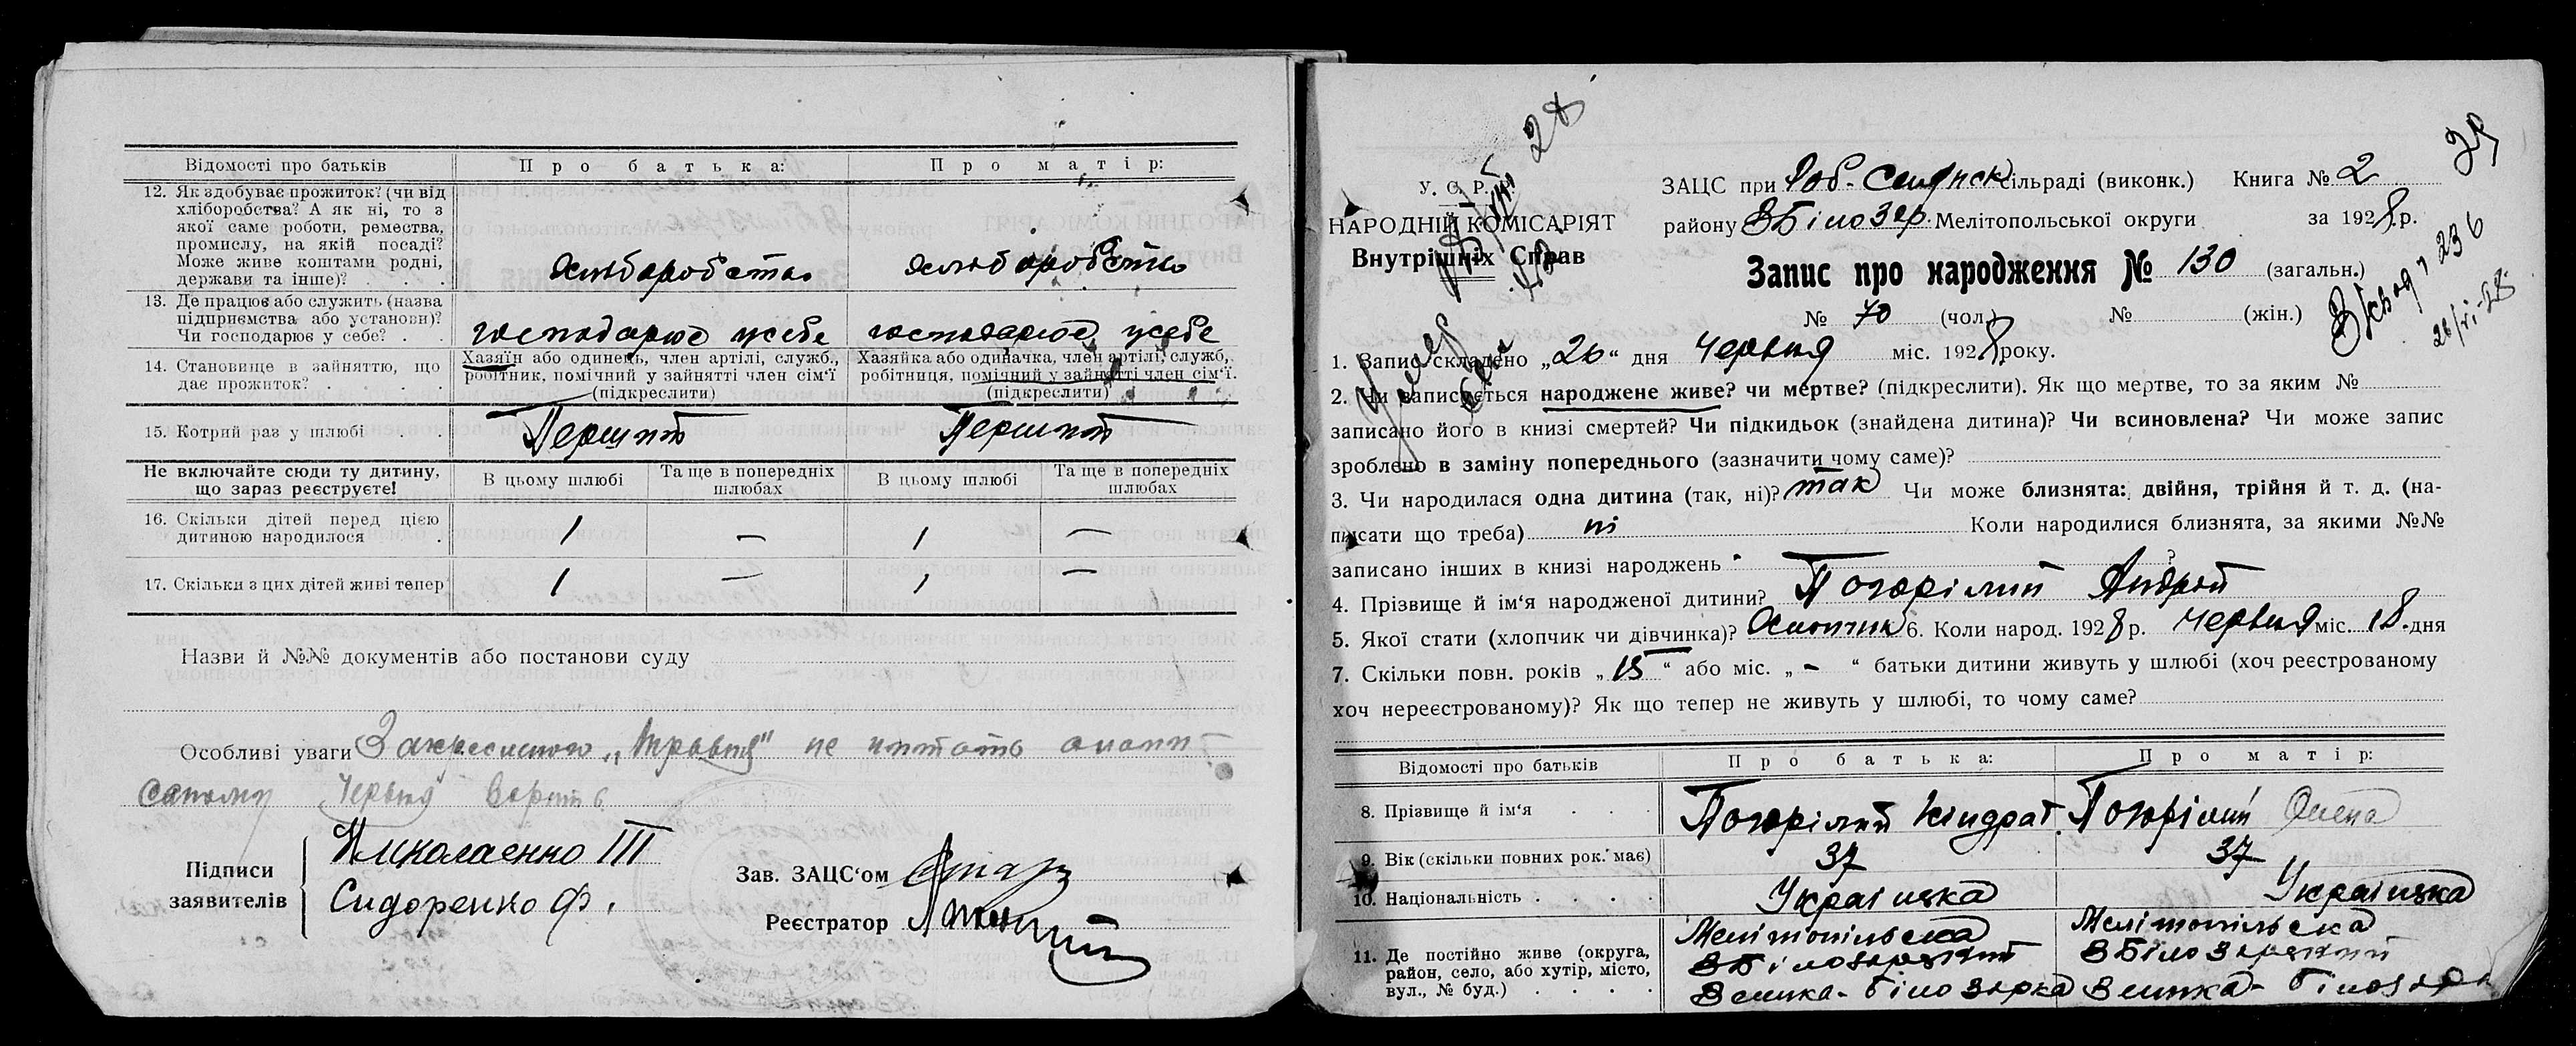 Відомості про батьків
Про батька:
Про матір:
12. Як здобуває прожиток? (чи від
хліборобства? А як ні, то з
якої саме роботи, ремества,
промислу, на якій посаді?
Може живе коштами родні,
держави та інше)? . . .
хліборобство
хліборобство
13. Де працює або служить (назва
підприємства або установи)?
Чи господарює у себе? . .
господарює у себе
господарює у себе
14. Становище в зайняттю, що
дає прожиток? . . . .
Хазяїн або одинець, член артілі, служб.,
робітник, помічний у зайнятті член сім'ї
(підкреслити)
Хазяйка або одиначка, член артілі, служб.,
робітниця, помічний у зайнятті член сім'ї.
(підкреслити)
15. Котрий раз у шлюбі . .
Перший
Перший
Не включайте сюди ту дитину,
що зараз реєструєте!
В цьому шлюбі
Та ще в попередніх
шлюбах
В цьому шлюбі
Та ще в попередніх
шлюбах
16. Скільки дітей перед цією
дитиною народилося .
1 — 1 —
17. Скільки з цих дітей живі тепер
1 — 1 —
Назви й №№ документів або постанови суду
Особливі уваги Закресленого „Травня" не читать а
Червня вірить
Підписи
заявителів
Николаенко III
Сидоренко Ф.
Зав. ЗАЦС'ом
Реєстратор
28
29
У. С. Р. Р.
НАРОДНІЙ КОМІСАРІЯТ
Внутрішніх Справ
ЗАЦС при Роб-Селянск сільраді (виконк.) Книга № 2
району ВБілозер. Мелітопольської округи за 1928 р.
Запис про народження № 130 (загальн.)
236
26/VI-28
№ 70 (чол.) № (жін.)
1. Запис складено „26" дня Червня міс. 1928 року.
2. Чи записується народжене живе? чи мертве? (підкреслити). Як що мертве, то за яким №
записано його в книзі смертей? Чи підкидьок (знайдена дитина)? Чи всиновлена? Чи може запис
зроблено в заміну попереднього (зазначити чому саме)?
3. Чи народилася одна дитина (так, ні)? так Чи може близнята: двійня, трійня й т. д. (на-
писати що треба) ні Коли народилися близнята, за якими №№
записано інших в книзі народжень ?
4. Прізвище й ім'я народженої дитини? Погорілий Андрей
5. Якої стати (хлопчик чи дівчинка)? Хлопчик 6. Коли народ. 1928 р. Червня міс. 18 дня
7. Скільки повн. років „15" або міс. „-" батьки дитини живуть у шлюбі (хоч реєстрованому
хоч нереєстрованому)? Як що тепер не живуть у шлюбі, то чому саме?
Відомості про батьків
Про батька:
Про матір:
8. Прізвище й ім'я . . .
Погорілий Кіндрат
Погорілий Олена
9. Вік (скільки повних рок. має)
37
37
10. Національність . . . .
Українька
Українька
11. Де постійно живе (округа,
район, село, або хутір, місто,
вул., № буд.) . . . .
Мелітопільска
ВБілозерский
Велика-Білозерка
Мелітопільска
ВБілозерский
Велика-Білозерка